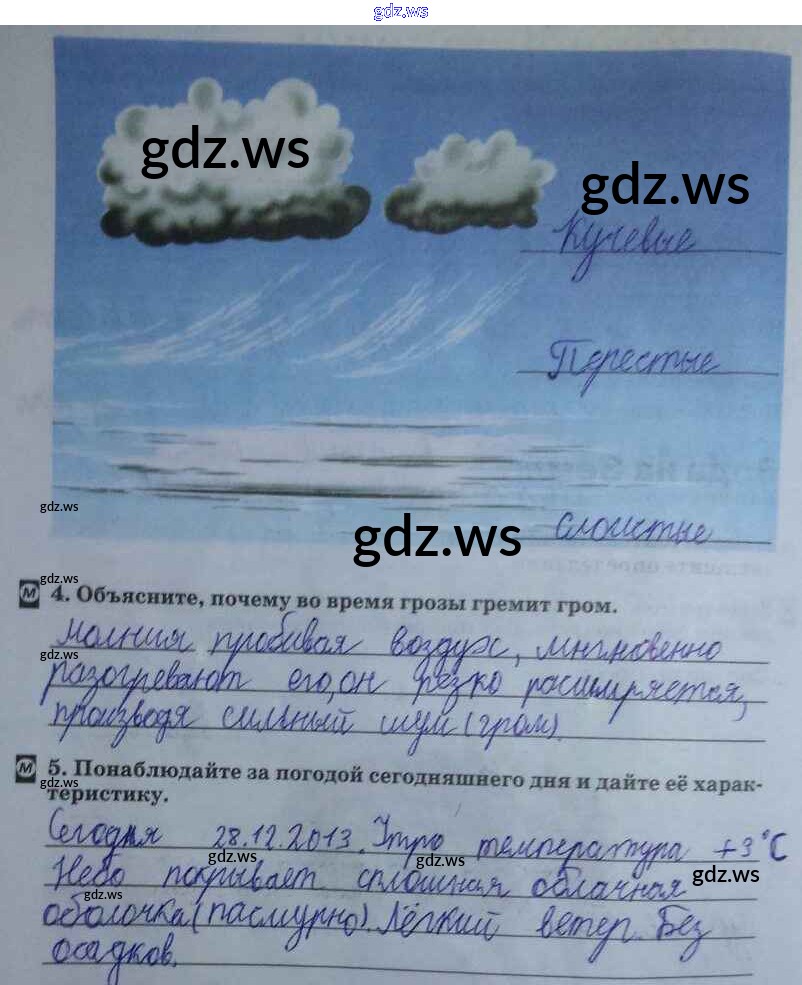 gdz.ws
gdz.ws
gdz.ws
Кучевые
Перестые
gdz.ws
gdz.ws
слоистые
gdz.ws
4. Объясните, почему во время грозы гремит гром.
Молния пробивая воздух, мгновенно
gdz.ws
разогревают его, он резко расширяется,
производя сильный шум (гром)
5. Понаблюдайте за погодой сегодняшнего дня и дайте её харак-
gdz.ws
теристику.
Сегодня 28.12.2013. Утро температура +3°C
gdz.ws gdz.ws gdz.ws
Небо покрывает сплошная облачная
gdz.ws
оболочка (пасмурно). Лёгкий ветер. Без
осадков.